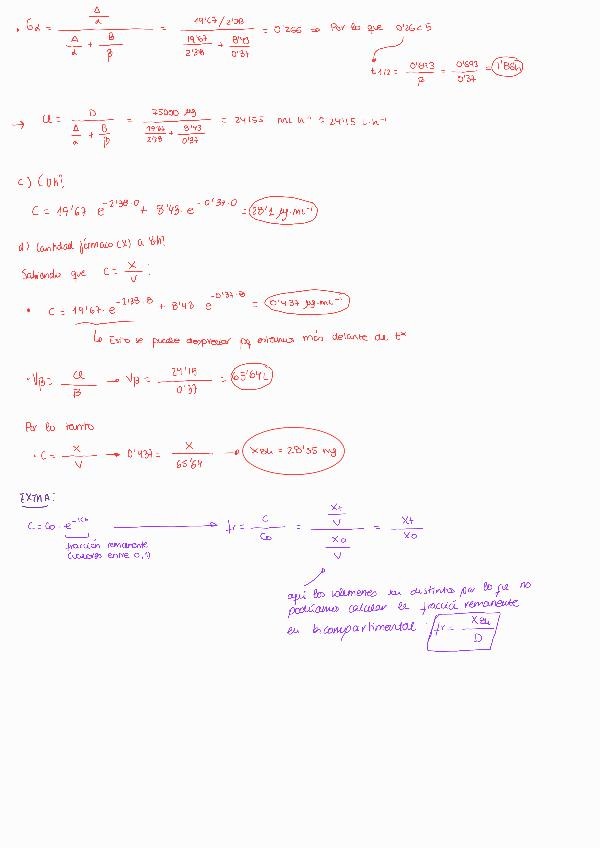 · Eα = (A/α) / (A/α + B/β) = (19'67/2'38) / (19'67/2'38 + 8'43/0'37) = 0'266 ⇒ Por lo que 0'26 < 5
t 1/2 = 0'693/β = 0'693/0'37 = 1'86h
→ Cl = D / (A/α + B/β) = 75000 µg / (19'67/2'38 + 8'43/0'37) = 24155 mL h⁻¹ = 24'15 L·h⁻¹
c)
C = 19'67 e^-2'38·0 + 8'43 · e^-0'37·0 = 28'1 µg·mL⁻¹
d) Cantidad fármaco (X) a 8h?
Sabiendo que C = X/V :
· C = 19'67 · e^-2'38·8 + 8'43 e^-0'37·8 = 0'437 µg·mL⁻¹
↳ Esto se puede despreciar pq estamos más delante de t*
· Vβ = Cl/β → Vβ = 24'15/0'37 = 65'64 L
Por lo tanto
· C = X/V → 0'437 = X/65'64 → X8h = 28'55 mg
EXTRA:
C = C0 · e^-kt → fr = C/C0 = (Xt/V) / (X0/V) = Xt/X0
fracción remanente
(valores entre 0,1)
aquí los volúmenes son distintos por lo que no
podríamos calcular la fracció remanente
en bicompartimental : fr = X8h/D